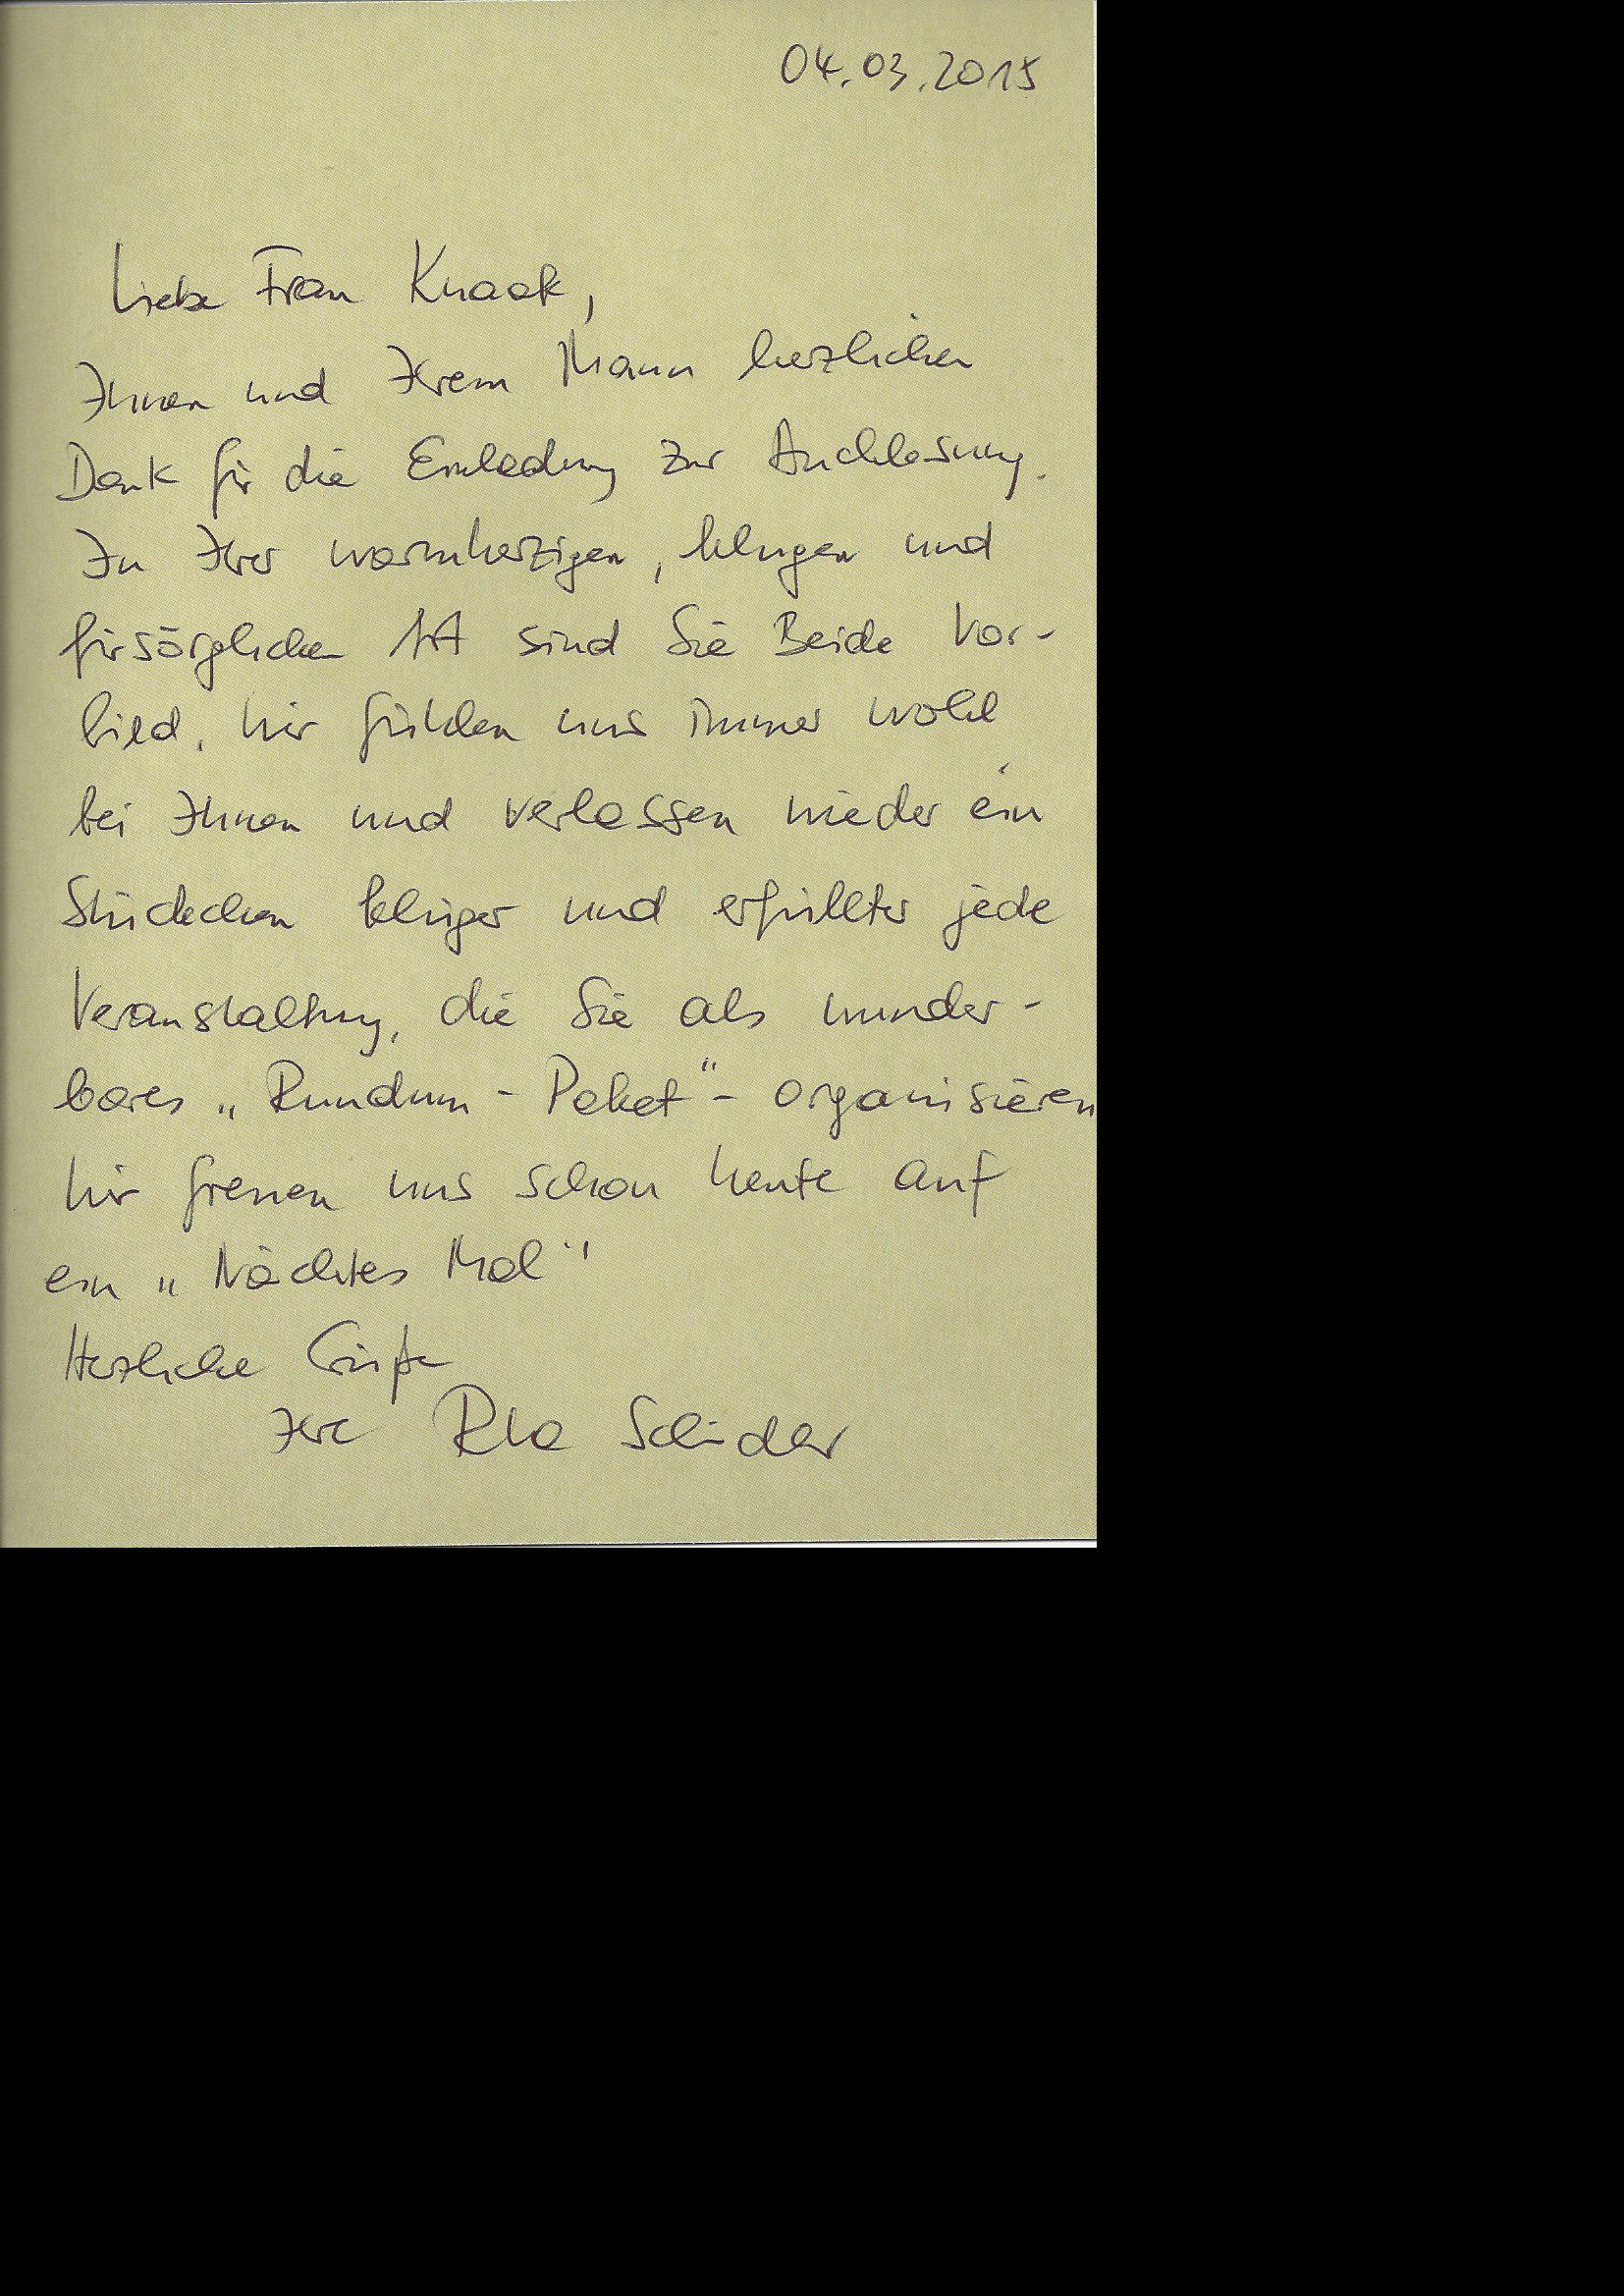 04.03.2015
Liebe Frau Knaak,
Ihnen und Ihrem Mann herzlichen
Dank für die Einladung zur Buchlesung.
In Ihrer warmherzigen, klugen und
fürsörglichen Art sind Sie Beide Vor-
bild. Wir fühlen uns immer wohl
bei Ihnen und verlassen wieder ein
Stückchen klüger und erfüllter jede
Veranstaltung, die Sie als wunder-
bares „Rundum-Paket"- organisieren
Wir freuen uns schon heute auf
ein „Nächtes Mal"
Herzliche Grüße
Ihre